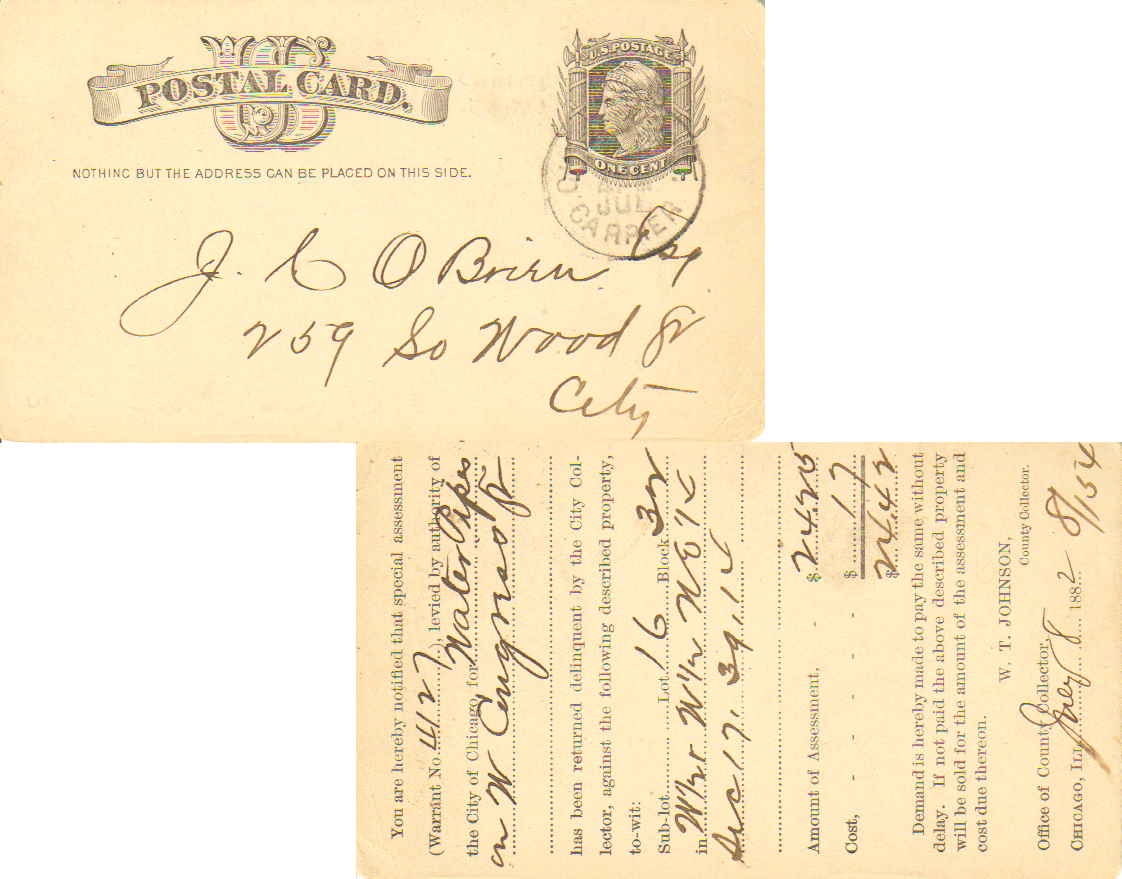 U.S. POSTAGE
POSTAL CARD.
ONE CENT
NOTHING BUT THE ADDRESS CAN BE PLACED ON THIS SIDE.
JUL
CARRIER
J. C O Brien Esq
259 So Wood St
City
You are hereby notified that special assessment
(Warrant No. 4127), levied by authority of
the City of Chicago, for Water Pipes
on W Congress St
has been returned delinquent by the City Col-
lector, against the following described property,
to-wit:
Sub-lot Lot 16 Block 32
in W 1/2 W 1/2 N E 1/4
Sec 17. 39. 14
Amount of Assessment, - $ 24.25
Cost, - - - - - $ 17
$ 24.42
Demand is hereby made to pay the same without
delay. If not paid the above described property
will be sold for the amount of the assessment and
cost due thereon.
W. T. JOHNSON,
County Collector.
Office of County Collector,
CHICAGO, ILL. July 8 1882 8/154